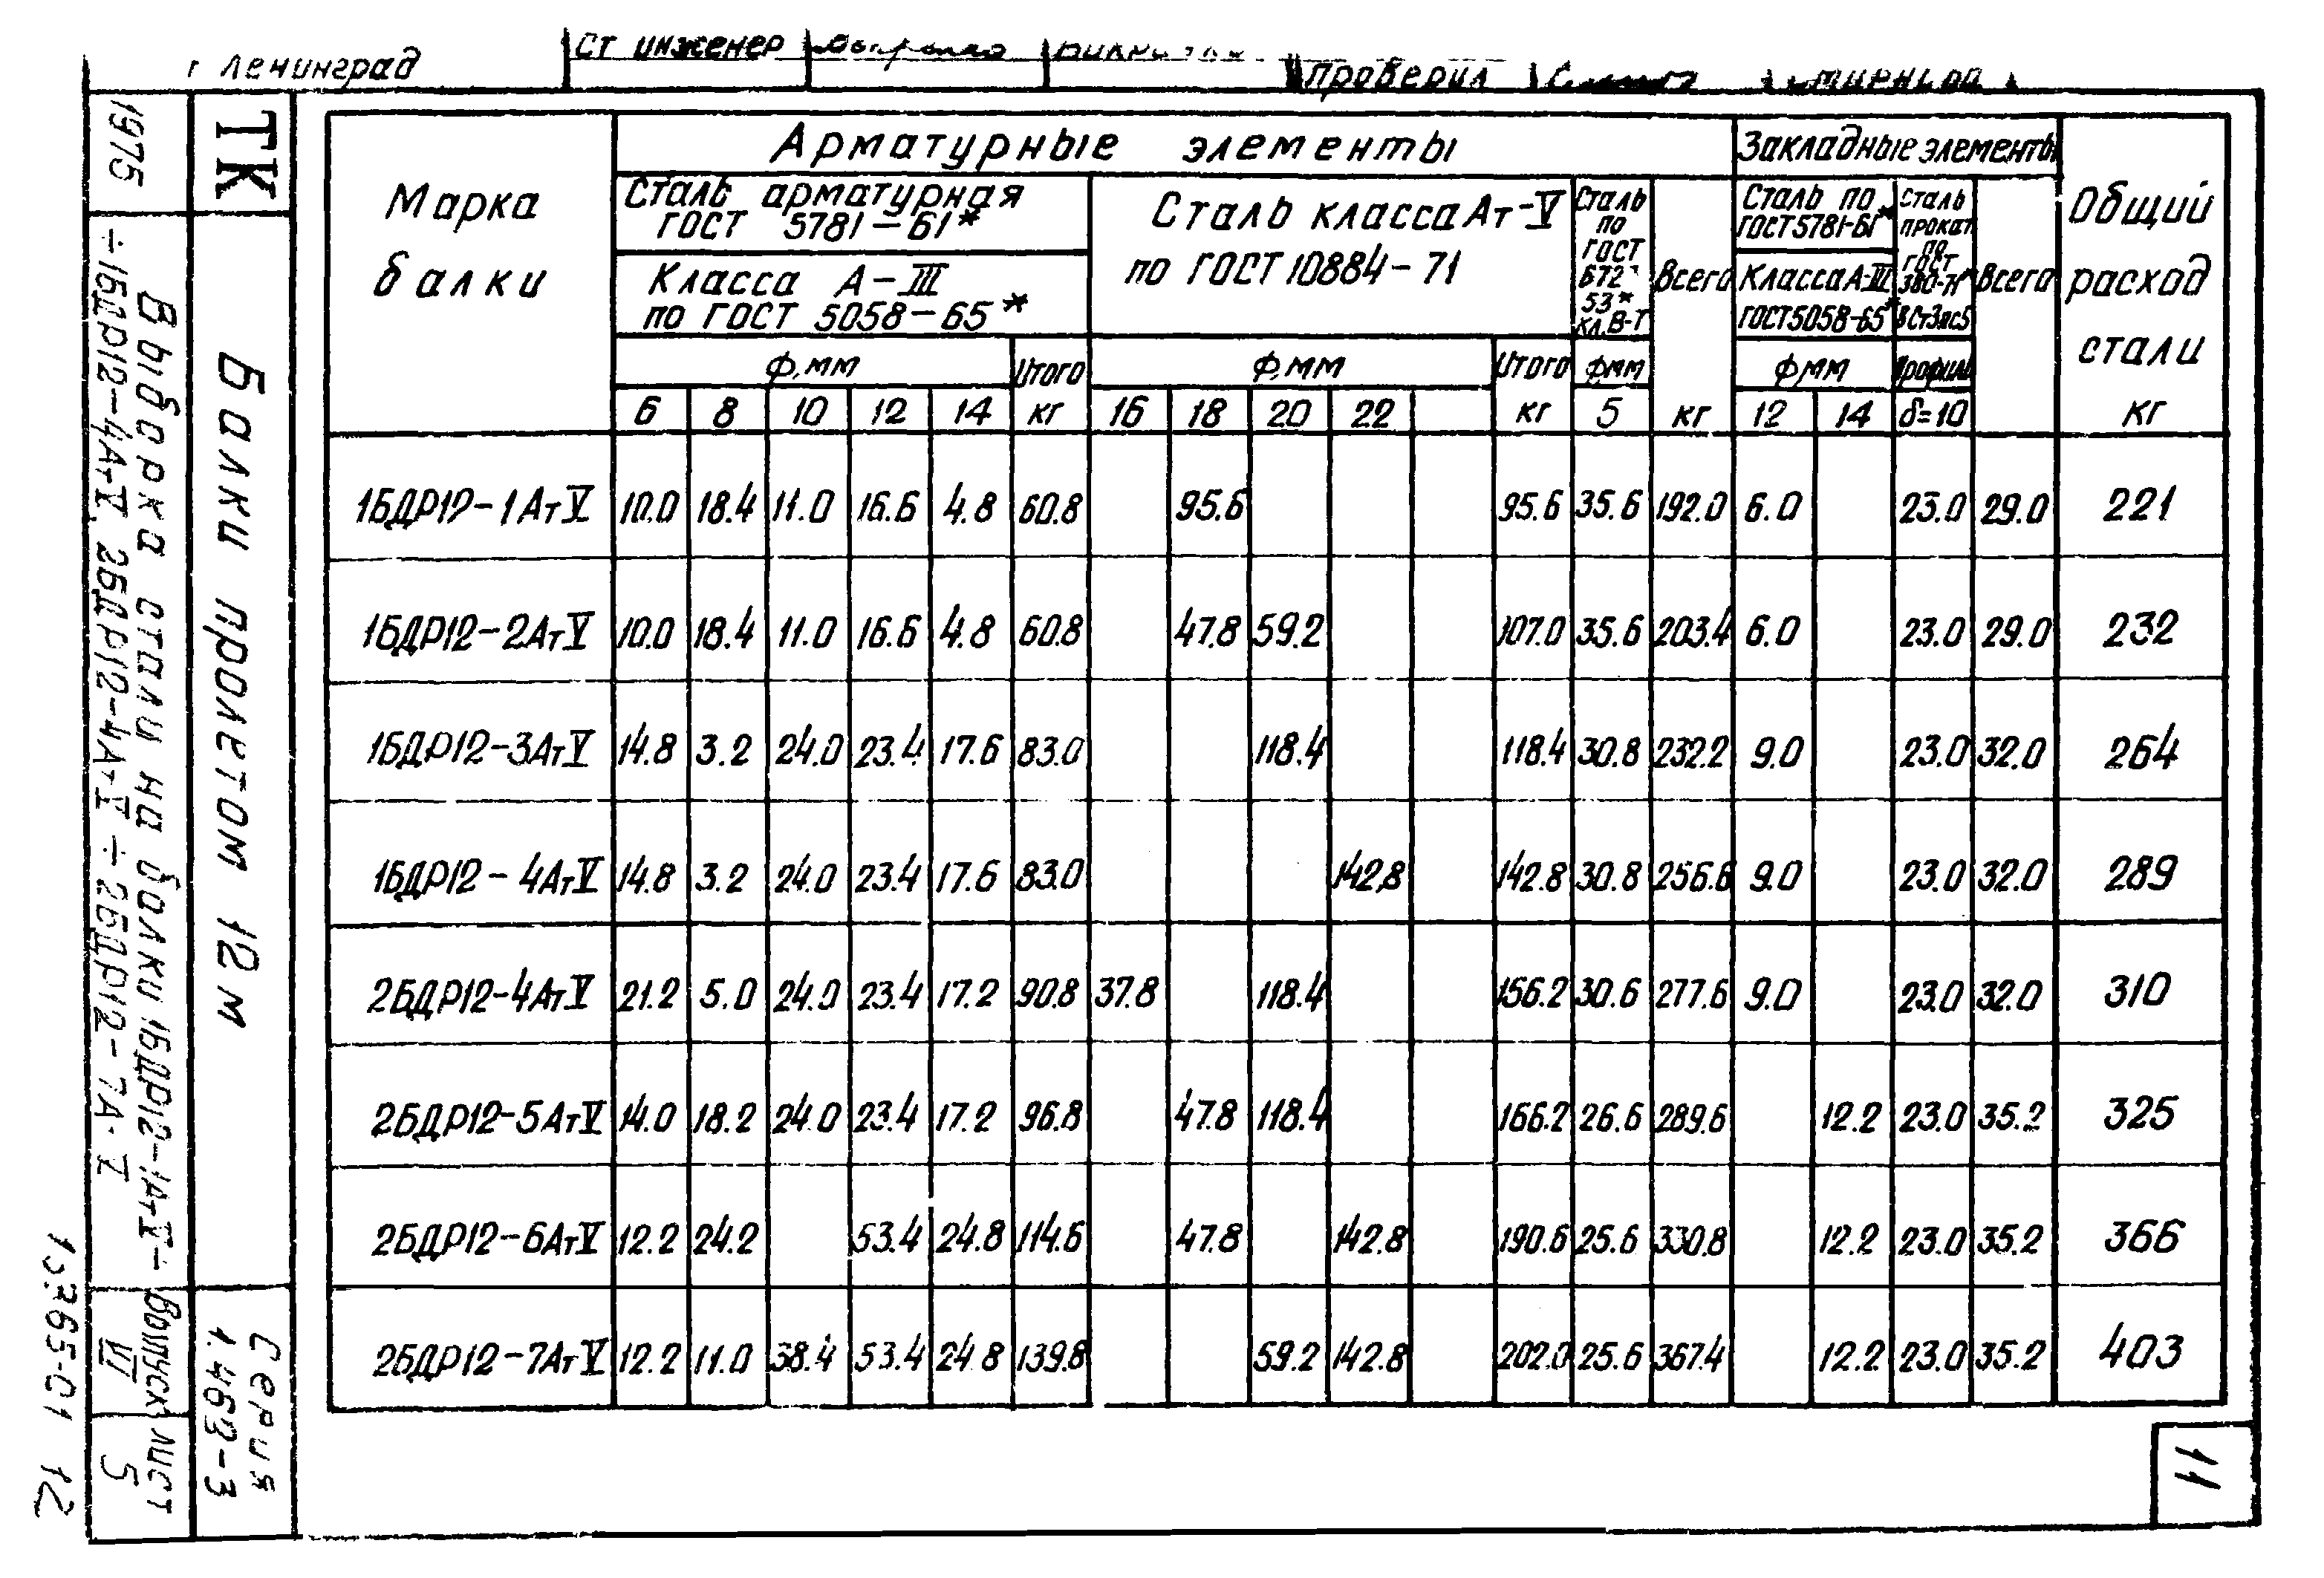 г Ленинград
Ст инженер
Проверил
ТК
1975
Балки пролетом 12 м
Выборка стали на балки 1БДР12-1Ат-V÷
÷1БДР12-4Ат-V, 2БДР12-4Ат-V÷2БДР12-7Ат-V
Серия
1.463-3
Выпуск VI
лист 5
12
Марка балки
Арматурные элементы
Закладные элементы
Общий расход стали кг
Сталь арматурная
ГОСТ 5781-61*
Класса А-III
по ГОСТ 5058-65*
Сталь класса Ат-V
по ГОСТ 10884-71
Сталь по ГОСТ 6727-53* кл. В-I
Всего кг
Сталь по
ГОСТ 5781-61*
Класса А-III
ГОСТ 5058-65*
Сталь прокат по ГОСТ 380-71* ВСт3пс5
Всего
Ф,мм Итого Ф,мм Итого Ф,мм Ф,мм Профиль
6 8 10 12 14 кг 16 18 20 22 кг 5 кг 12 14 δ=10 кг
1БДР12-1АтV 10.0 18.4 11.0 16.6 4.8 60.8 95.6 95.6 35.6 192.0 6.0 23.0 29.0 221
1БДР12-2АтV 10.0 18.4 11.0 16.6 4.8 60.8 47.8 59.2 107.0 35.6 203.4 6.0 23.0 29.0 232
1БДР12-3АтV 14.8 3.2 24.0 23.4 17.6 83.0 118.4 118.4 30.8 232.2 9.0 23.0 32.0 264
1БДР12-4АтV 14.8 3.2 24.0 23.4 17.6 83.0 142,8 142.8 30.8 256.6 9.0 23.0 32.0 289
2БДР12-4АтV 21.2 5.0 24.0 23.4 17.2 90.8 37.8 118.4 156.2 30.6 277.6 9.0 23.0 32.0 310
2БДР12-5АтV 14.0 18.2 24.0 23.4 17.2 96.8 47.8 118.4 166.2 26.6 289.6 12.2 23.0 35.2 325
2БДР12-6АтV 12.2 24.2 53.4 24.8 114.6 47.8 142.8 190.6 25.6 330.8 12.2 23.0 35.2 366
2БДР12-7АтV 12.2 11.0 38.4 53.4 24.8 139.8 59.2 142.8 202.0 25.6 367.4 12.2 23.0 35.2 403
11